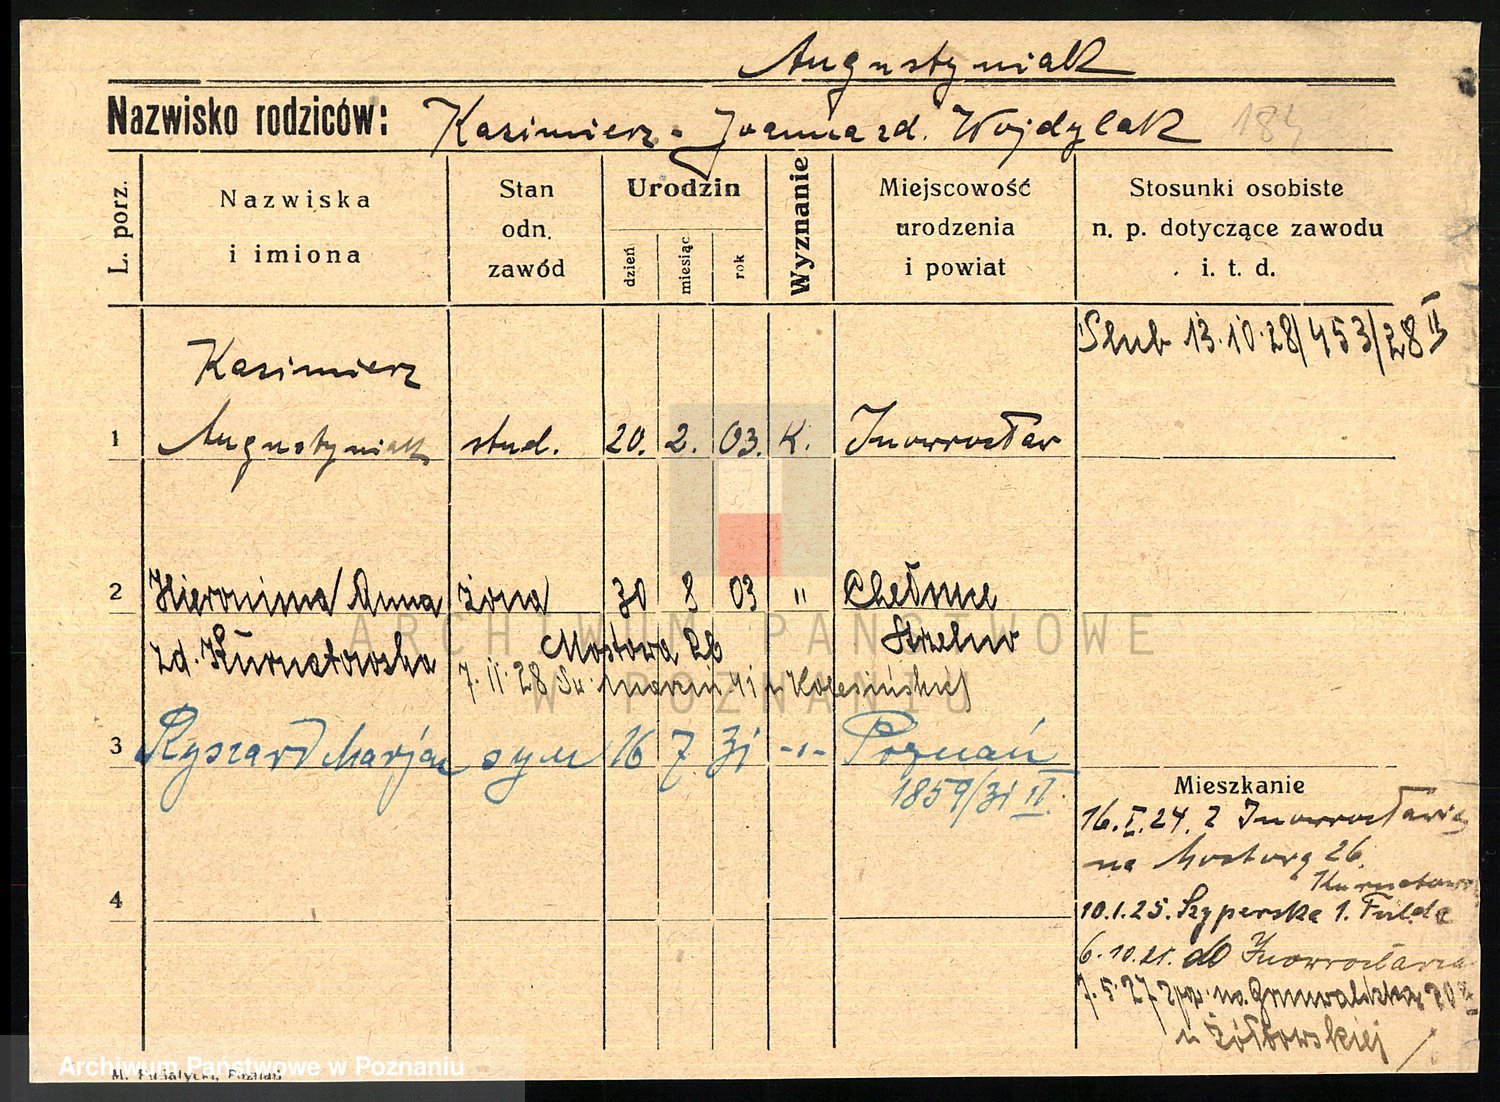 Augustyniak
Nazwisko rodziców: Kazimierz - Joanna zd. Wojdylak 184
L. porz.
Nazwiska
i imiona
Stan
odn.
zawód
Urodzin
dzień
miesiąc
rok
Wyznanie
Miejscowość
urodzenia
i powiat
Stosunki osobiste
n. p. dotyczące zawodu
i. t. d.
Ślub 13.10.28/453/28 II
Kazimierz
1 Augustyniak stud. 20. 2. 03. K. Inowrocław
2 Hieronima Anna żona 30 8 03 " Chełmce
zd. Kurnatowska Mostowa 26 Strzelno
7.11.28 Św. Marcin 41 u
3 Ryszard Marjan syn 16 7 31 -"- Poznań
1859/31 II.
Mieszkanie
16.I.24. z Inowrocławia
na Mostową 26
Kurnatows
4
10.1.25. Szyperska 1. Fulde
6.10.25. do Inowrocławia
7.5.27 na Grunwaldzką 20
u Żółtowskiej
ARCHIWUM PAŃSTWOWE
W POZNANIU
Archiwum Państwowe w Poznaniu
Poznań